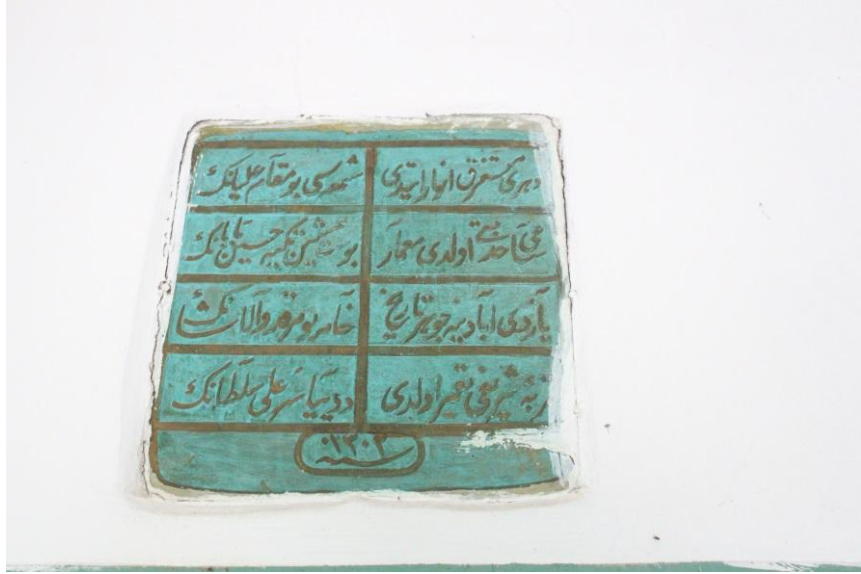 دهری مستغرق انوار ایتدی شمعه‌سی بو مقام علیانک
ساعی احمد اولدی معمار بو تکیه حسین بابانک
یازدی آباد ینه جوهر تاریخ خامه بو مرقد والاشانک
تربه شریفی تعمیر اولدی دده بیا سر علی سلطانک
سنه ۱۳۰۲